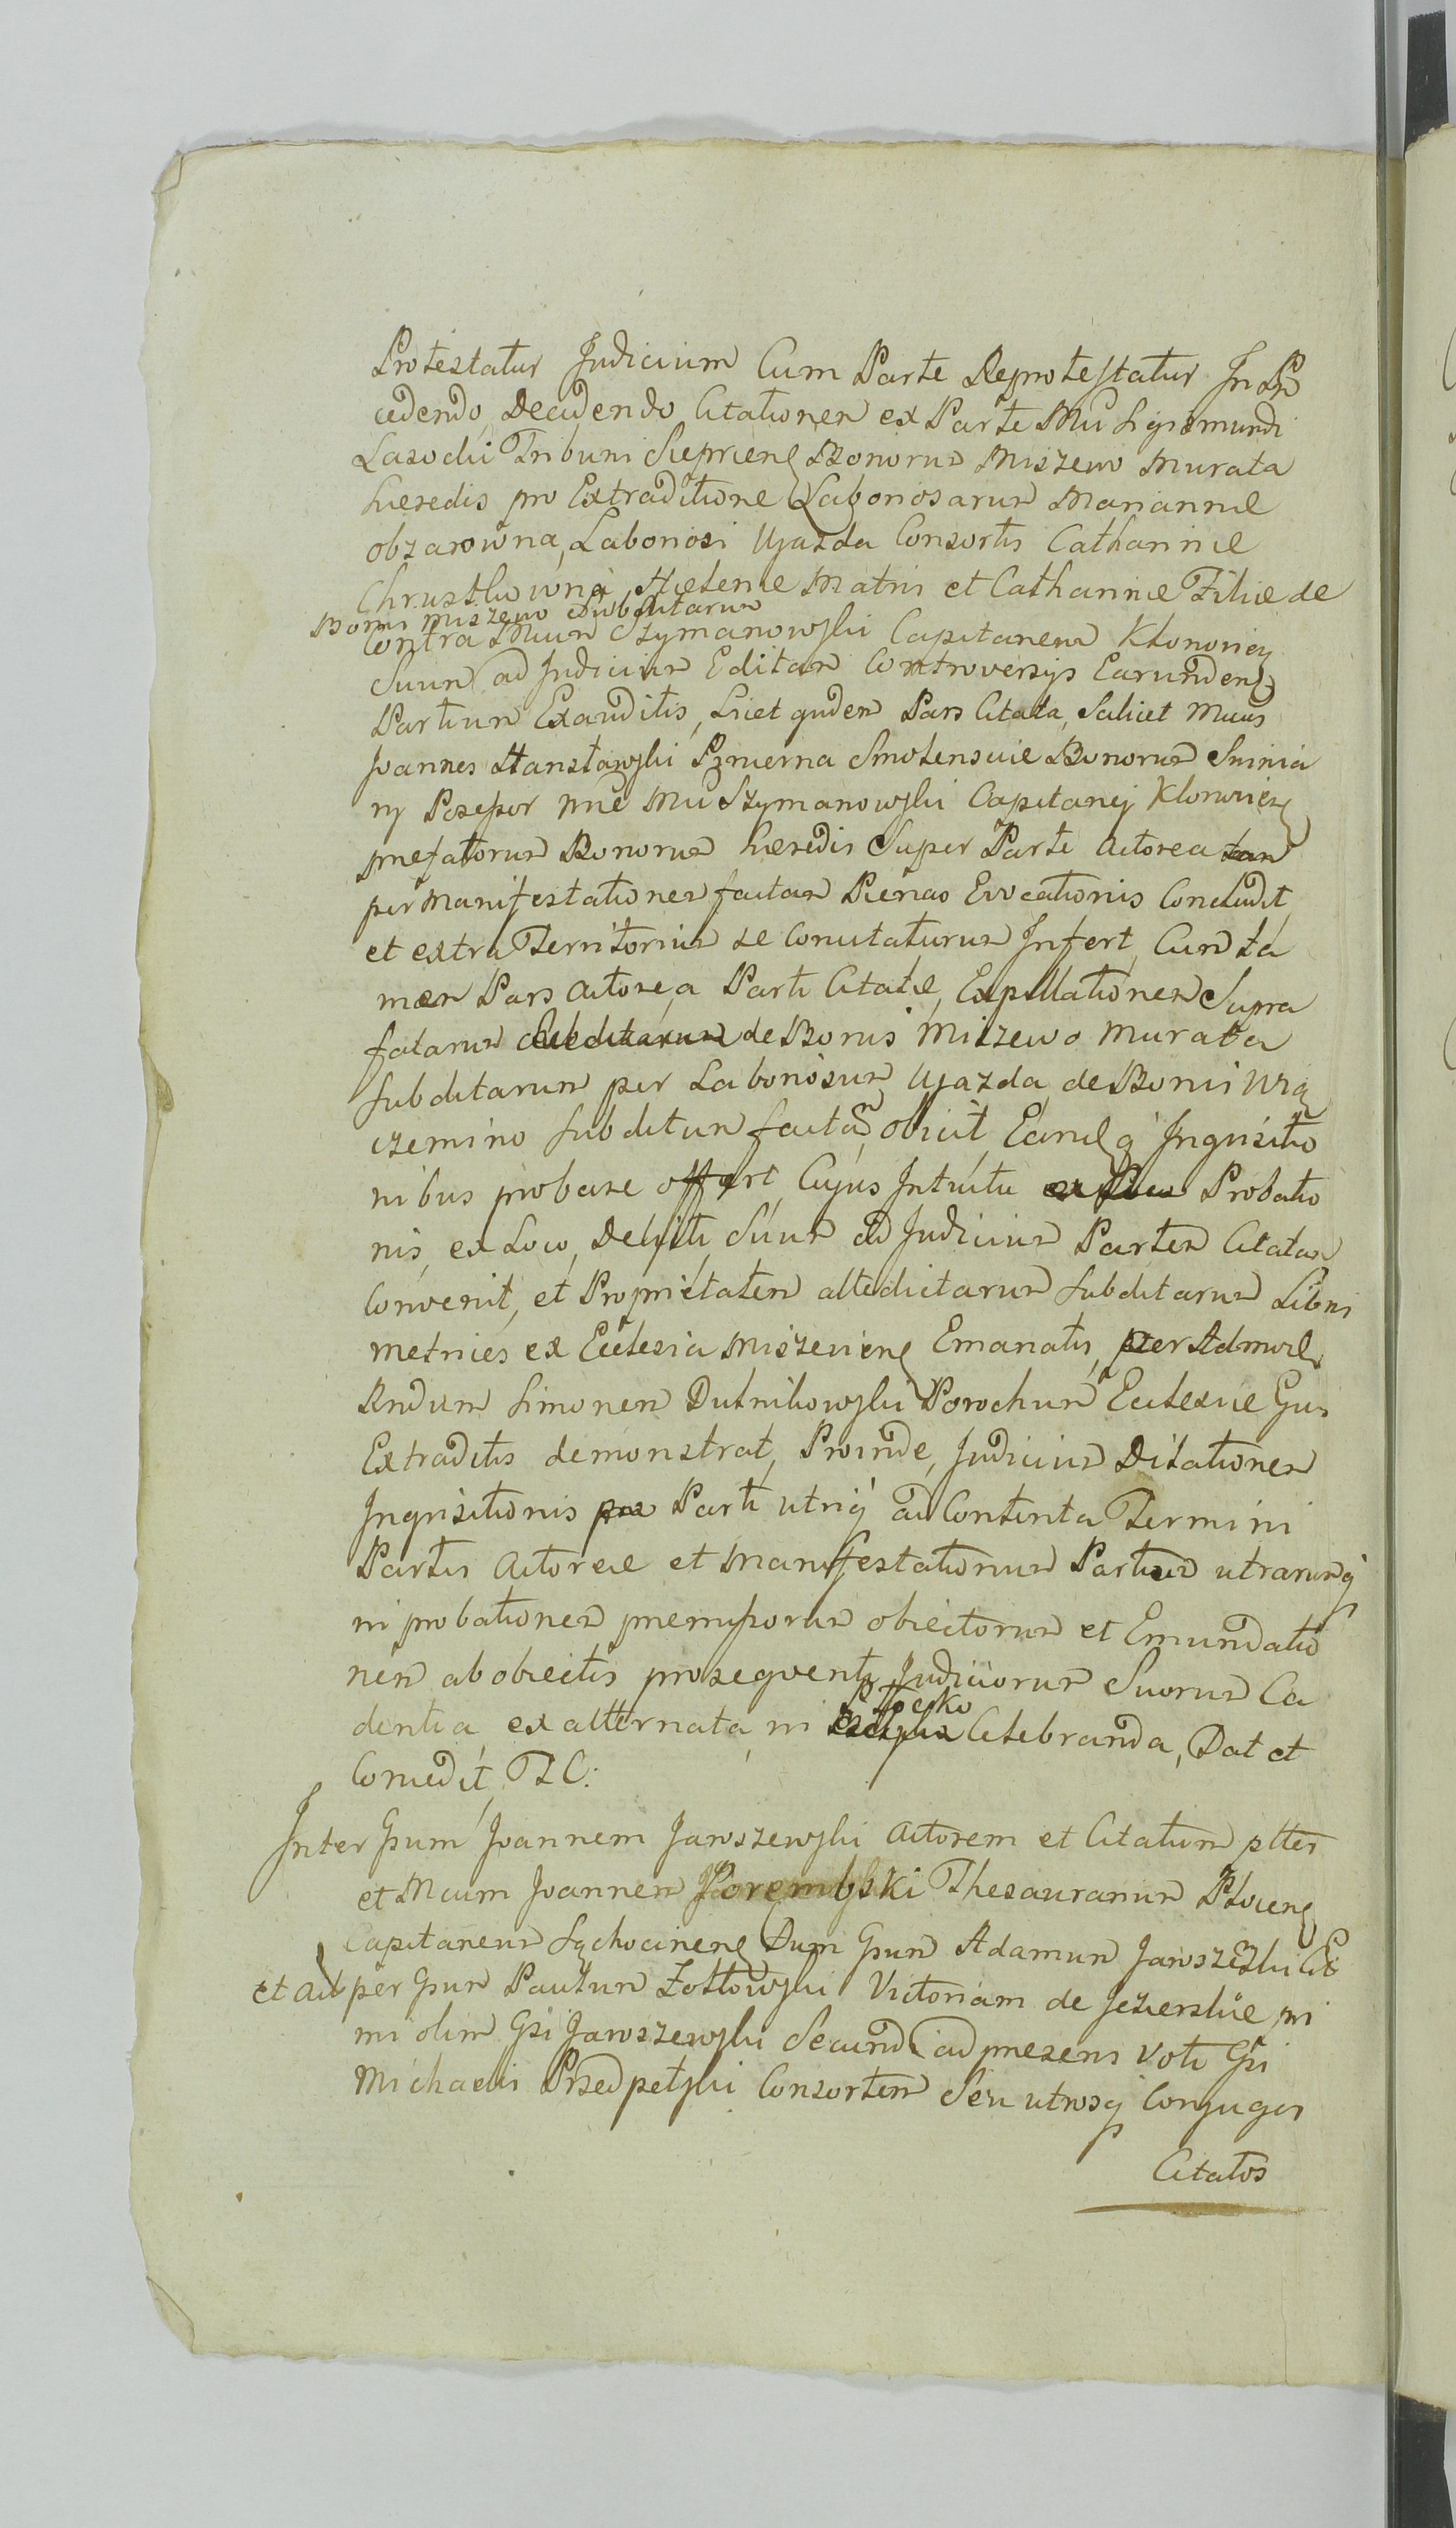 Protestatur Judicium Cum Parte Reprotestatur In Pro
cedendo, Decidendo, Citationem ex Parte Mci Sigismundi
Lasockii Tribuni Sieprcens Bonorum Miszewo Murata
hæredis pro Extraditione Laboriosarum Mariannæ
obzarowna, Laboriosi Ujazda Consortis Catharinæ
Chrustkowna, Helenæ Matris et Catharinæ Filiæ de
Bonis Miszewo Subditarum
Contra Mcum Szymanowski Capitaneum Klonovien
Suum ad Judicium Editam Controversijs Earundem
Partium Exauditis, Licet quidem Pars Citata, Scilicet Mcus
Joannes Stanisławski Pincerna Smolensciæ Bonorum
ny Possessor nne Mci Szymanowski Capitanej Klonovien
præfatorum Bonorum hæredis Super Parte Actorea
per Manifestationem factam Pænas Evocationis Concludit,
et extra Territorium se Conutaturum Infert, Cum ta
men Pars Actorea Parti Citatæ, Expillationem Supra
fatarum Subditarum de Bonis Miszewo Murata
Subditarum per Laboriosum Ujazda de Bonis Wrą
czemino Subditum factam obicit, Eamq Inquisitio
nibus probare offert, Cujus Intuitu Probatio
nis, ex Loco, Delicti, Suum ad Judicium Partem Citatam
Convenit, et Proprietatem attedictarum Subditarum Libris
Metrices ex Ecclesia Miszeviens Emanatis, per Admod
Rndum Simonem Dutnikowski Parochum Ecclesiæ Ejus
Extraditis demonstrat, Proinde, Judicium Dilationem
Inquisitionis Parti utriq ad Contenta Termini
Partis Actoreæ et Manifestationum Partium utrarumq
in probationem præmissorum obiectorum et Emundatio
nem ab obiectis prosequenti Judiciorum Suorum Ca
dentia, ex alternata, in Płocko Celebranda, Dat et
Concedit, T C:
Inter Gsum Joannem Jaroszewski Actorem et Citatum ptter
et Mcum Joannem Porembski Thesaurarium Płocens
Capitaneum Sąchocinens Dum Gsum Adamum Jaroszewski
et Act per Gsum Paulum Żołtowski Victoriam de Jezierskie pri
mi olim Gsi Jaroszewski Secundi ad præsens Voti Gsi
Michaelis Przedpełski Consortem Seu utrosq Conjuges
Citatos